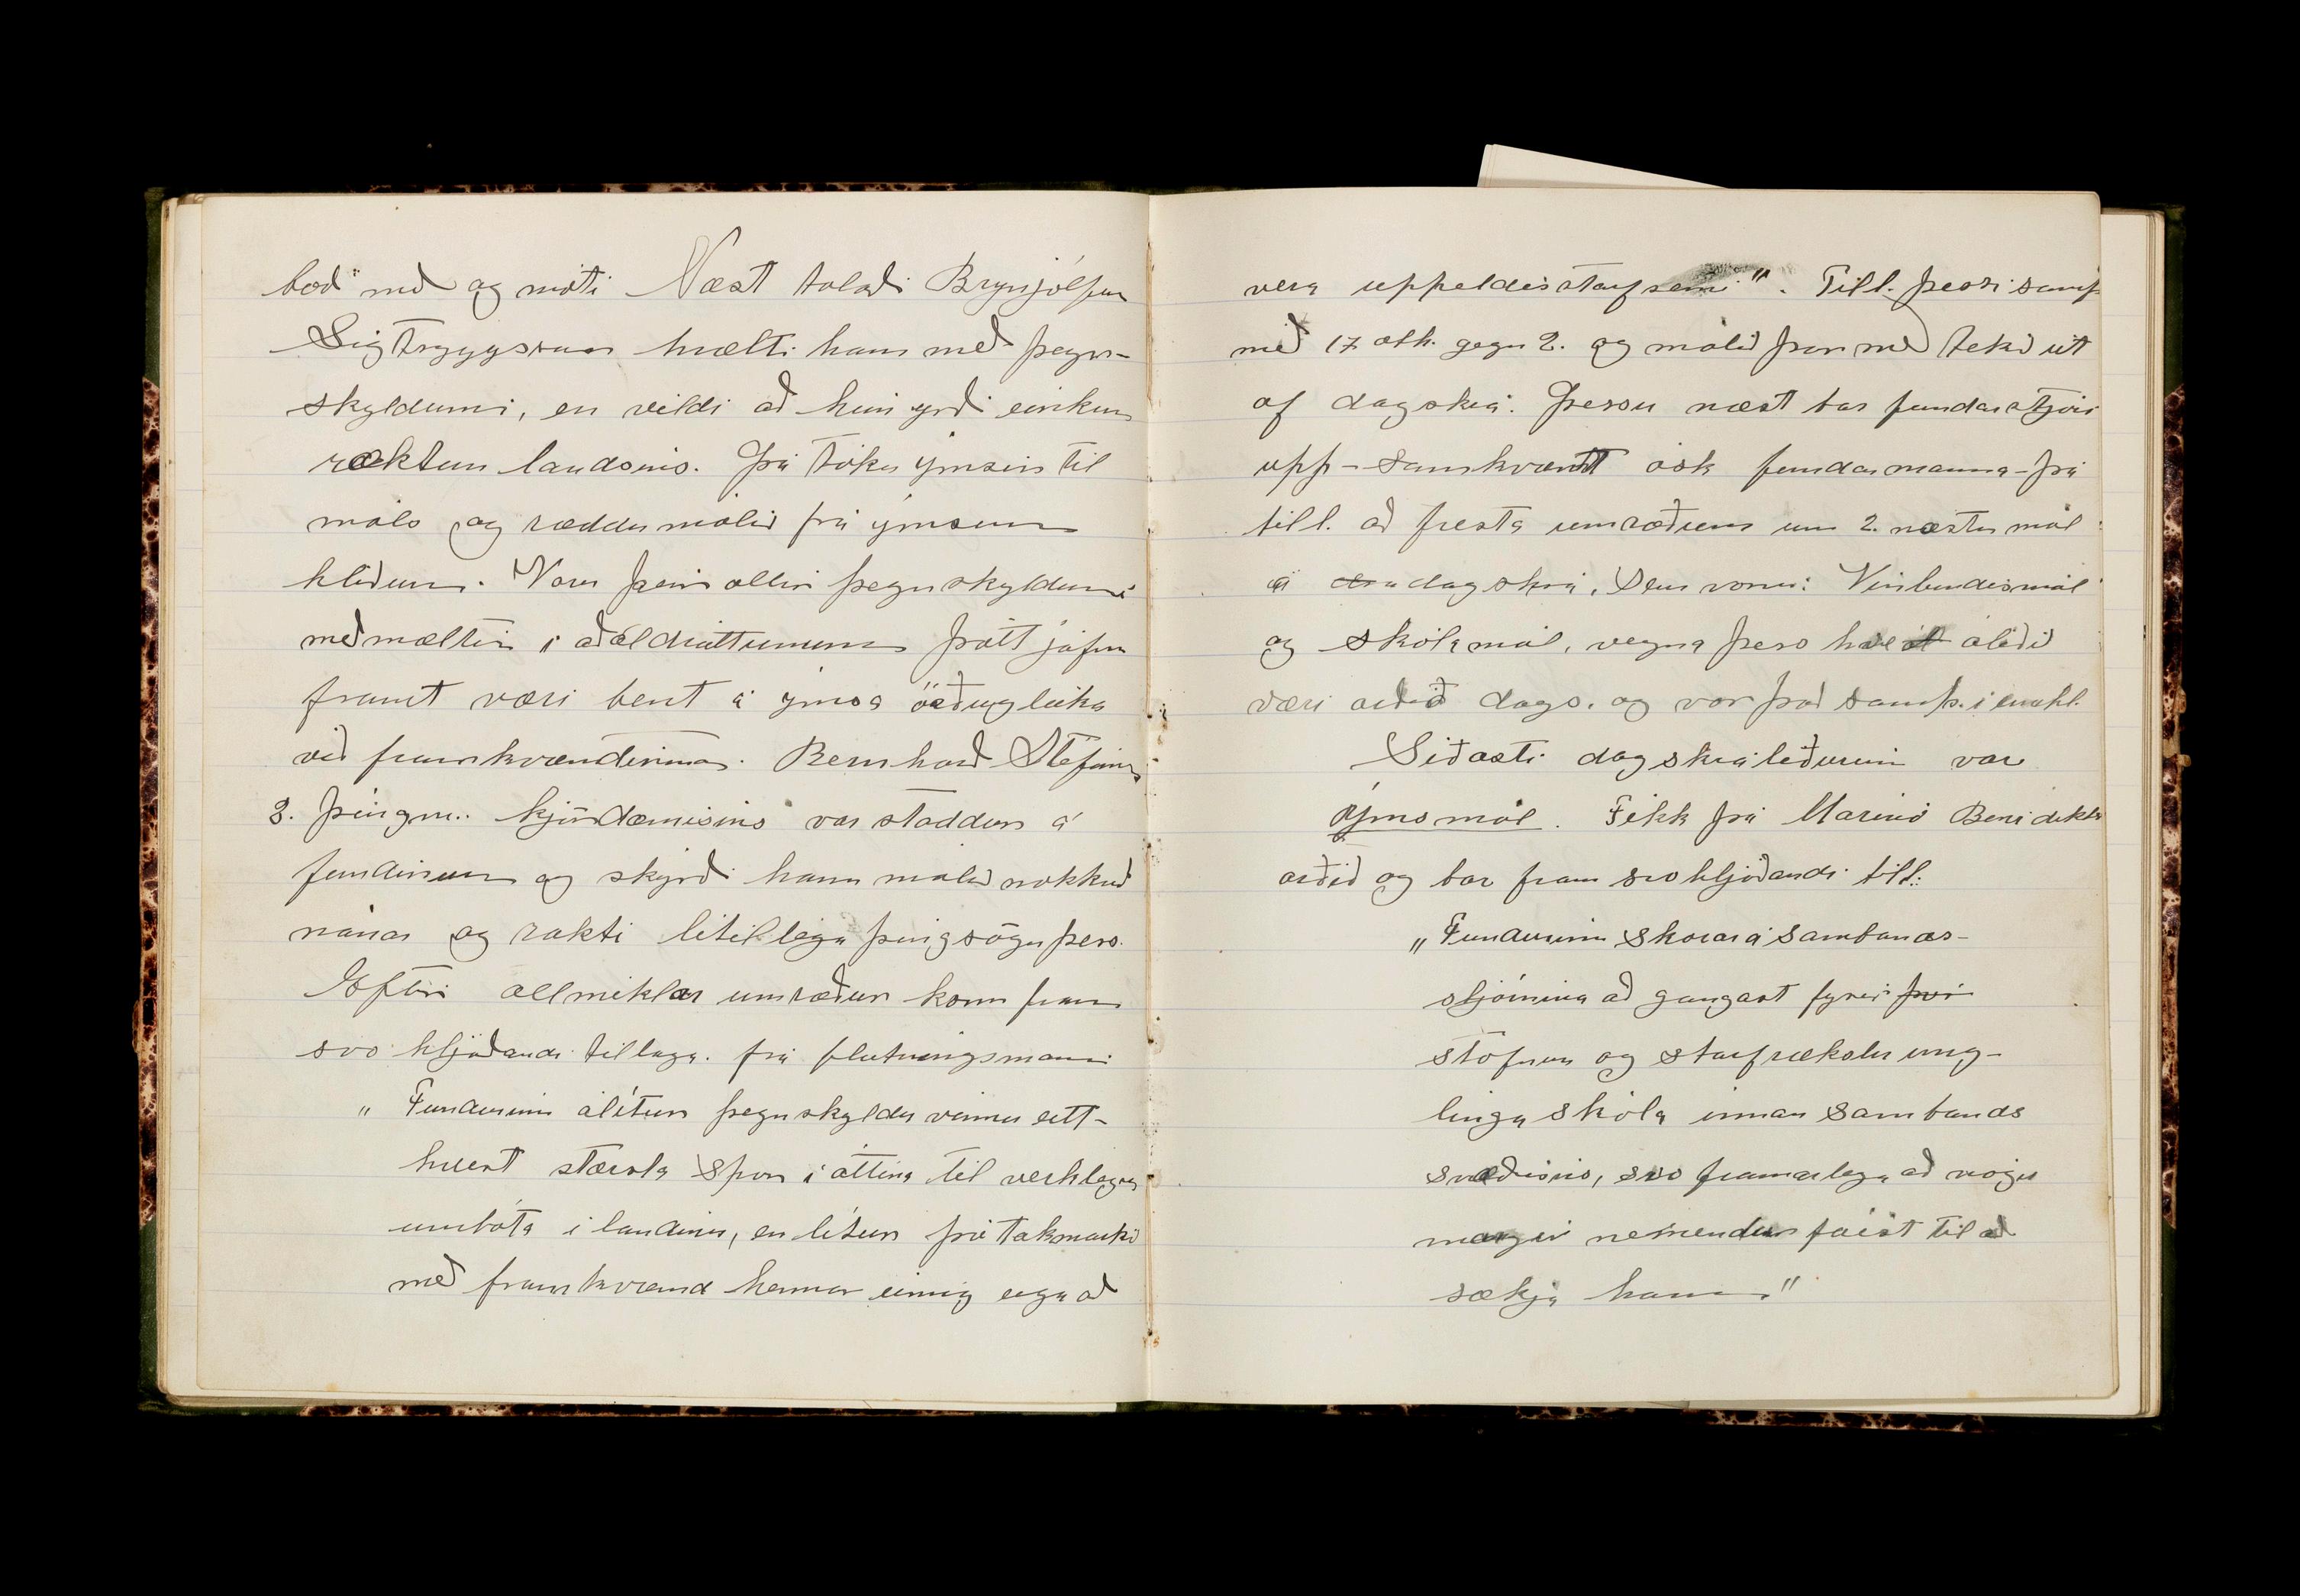 boð" með og móti Næst talaði Brynjólfur
Sigtryggsson mælti hann með þegn-
skyldunni, en vildi að hún yrði einkum
ræktun landsins. Þá tóku ýmsir til
máls og ræddu málið frá ýmsum
hliðum. Voru þeir allir þegnskyldunni
meðmæltir í aðaldráttunum þótt jafn
framt væri bent á ýmsa örðugleika
við framkvæmdirnar. Bernharð Stefáns
3. þingm. kjördæmisins var staddur á
fundinum og skýrði hann málið nokkuð
nánar og rakti lítillega þingsögu þess.
Eftir allmiklar umræður kom fram
svo hljóðandi tillaga. frá flutningsmanni
„ Fundurinn álítur þegnskyldu vinnu eitt-
hvert stærsta spor í áttina til verklegra
umbóta í landinu, en lítur þó takmarkið
með framkvæmd hennar einnig eiga að
vera uppeldisstarfsemi". Till. þessi samþ
með 17 atk. gegn 2. og málið þar með tekið út
af dagskrá. Þessu næst bar fundarstjóri
upp - samkvæmt ósk fundarmanna - þá
till. að fresta umræðum um 2. næstu mál
á dagskrá, sem voru: Vínbindismál
og skólamál, vegna þess hve áliðið
væri orðið dags. og var það samþ. í einuhl.
Síðasti dagskráliðurinn var
Ýms mál. Fékk þá Marinó Benidikts
orðið og bar fram svohljóðandi till:
„Fundurinn skorar á sambands-
stjórnina að gangast fyrir því
stofnun og starfrækslu ung-
lingaskóla innan sambands
svæðisins, svo framarlega að nógu
margir nemendur fáist til að
sækja hann."